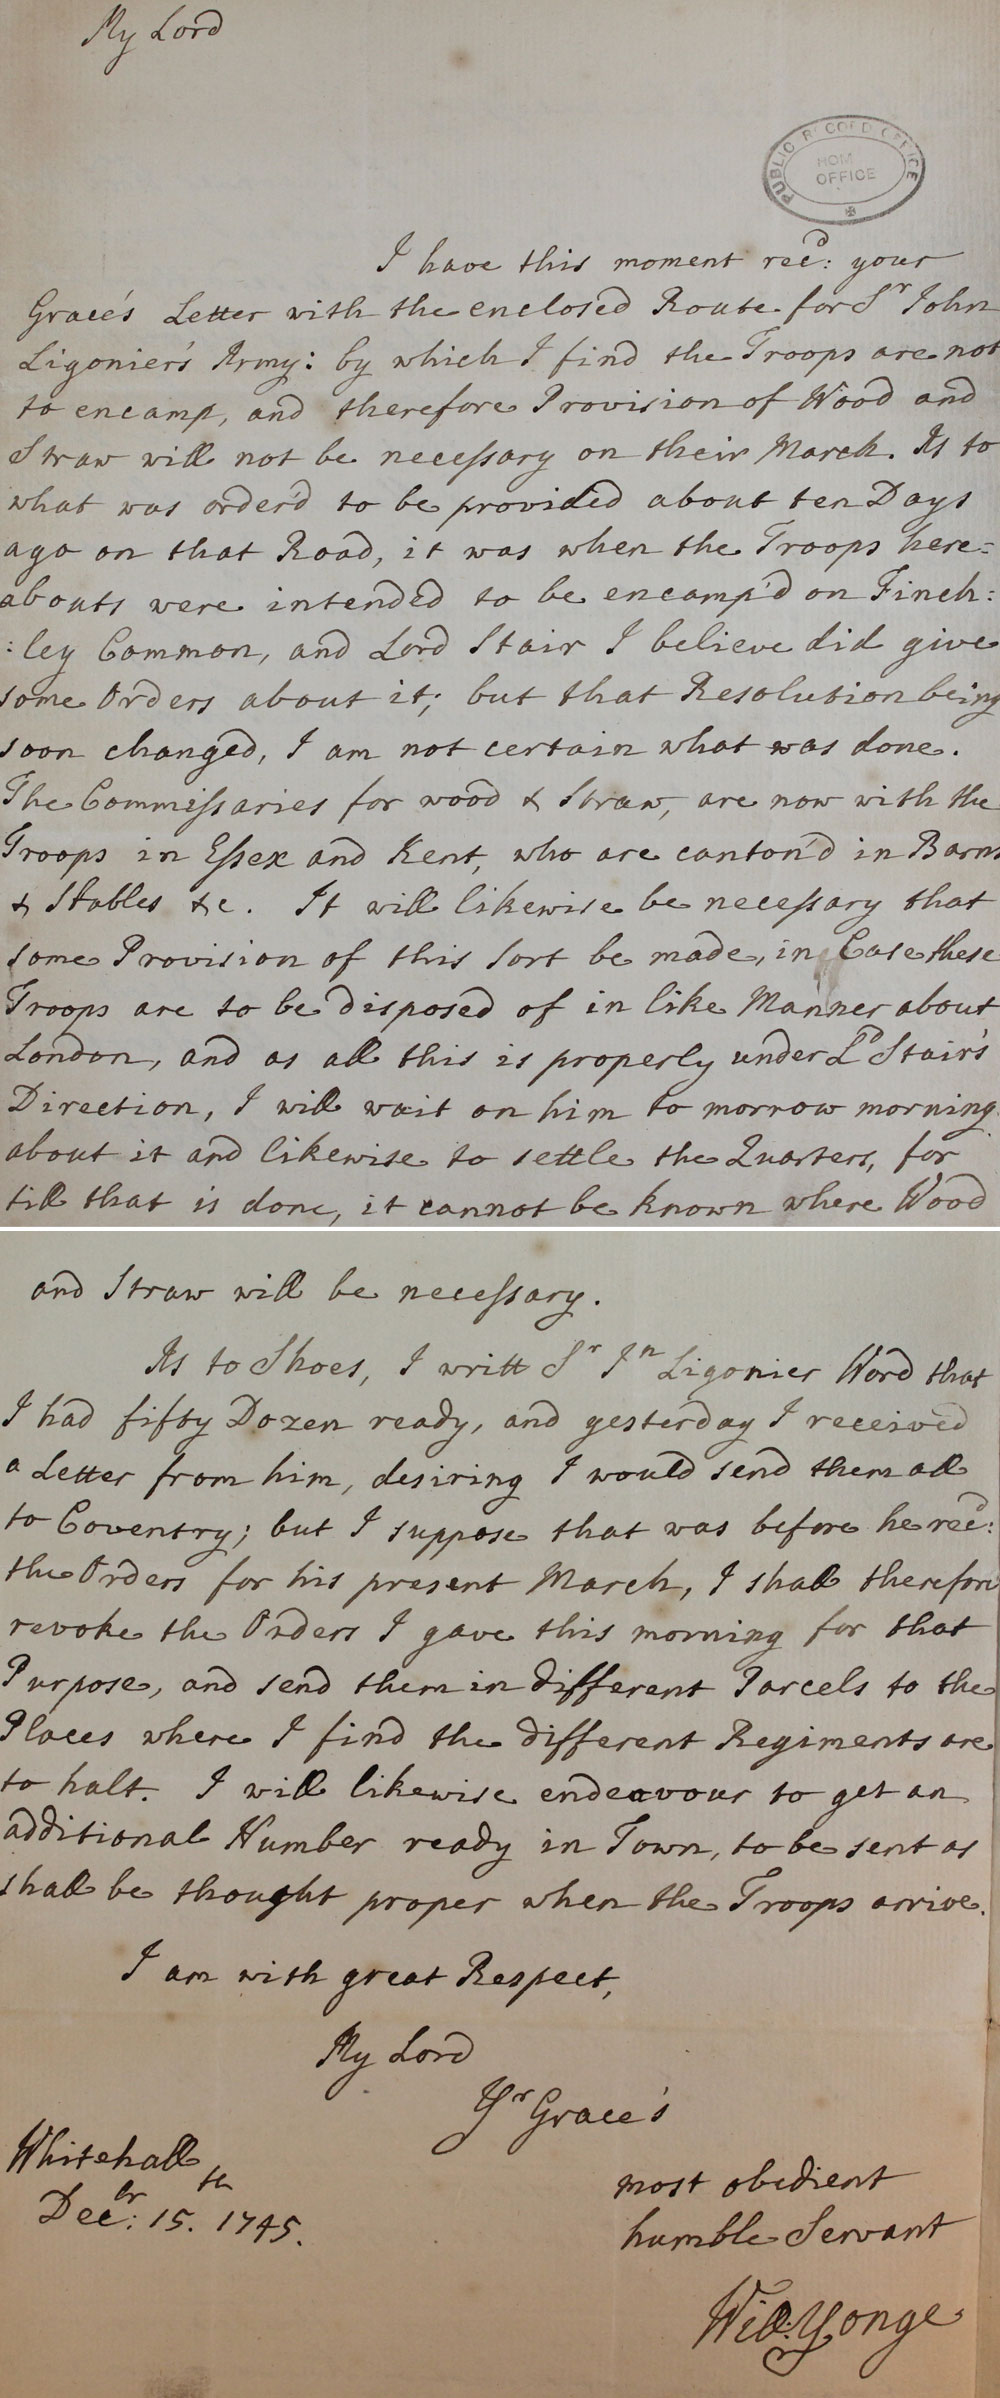 My Lord
PUBLIC RECORD OFFICE
HOME
OFFICE
I have this moment rec.d: your
Grace's Letter with the enclosed Route for S.r John
Ligonier's Army: by which I find the Troops are not
to encamp, and therefore Provision of Wood and
Straw will not be necessary on their March. As to
what was order'd to be provided about ten Days
ago on that Road, it was when the Troops here=
abouts were intended to be encamp'd on Finch:
:ley Common, and Lord Stair I believe did give
some Orders about it; but that Resolution being
soon changed, I am not certain what was done.
The Commissaries for wood & Straw, are now with the
Troops in Essex and Kent, who are canton'd in Barns
& Stables &c. It will likewise be necessary that
some Provision of this sort be made, in Case these
Troops are to be disposed of in like Manner about
London, and as all this is properly under L.d Stair's
Direction, I will wait on him to morrow morning
about it and likewise to settle the Quarters, for
till that is done, it cannot be known where Wood
and Straw will be necessary.
As to Shoes, I writt S.r J.n Ligonier Word that
I had fifty Dozen ready, and yesterday I received
a Letter from him, desiring I would send them all
to Coventry; but I suppose that was before he rec.d:
the Orders for his present March, I shall therefore
revoke the Orders I gave this morning for that
Purpose, and send them in different Parcels to the
Places where I find the different Regiments are
to halt. I will likewise endeavour to get an
additional Number ready in Town, to be sent as
shall be thought proper when the Troops arrive.
I am with great Respect,
My Lord
Y.r Grace's
most obedient
humble Servant
Will: Yonge
Whitehall
Dec.br: 15.th 1745.